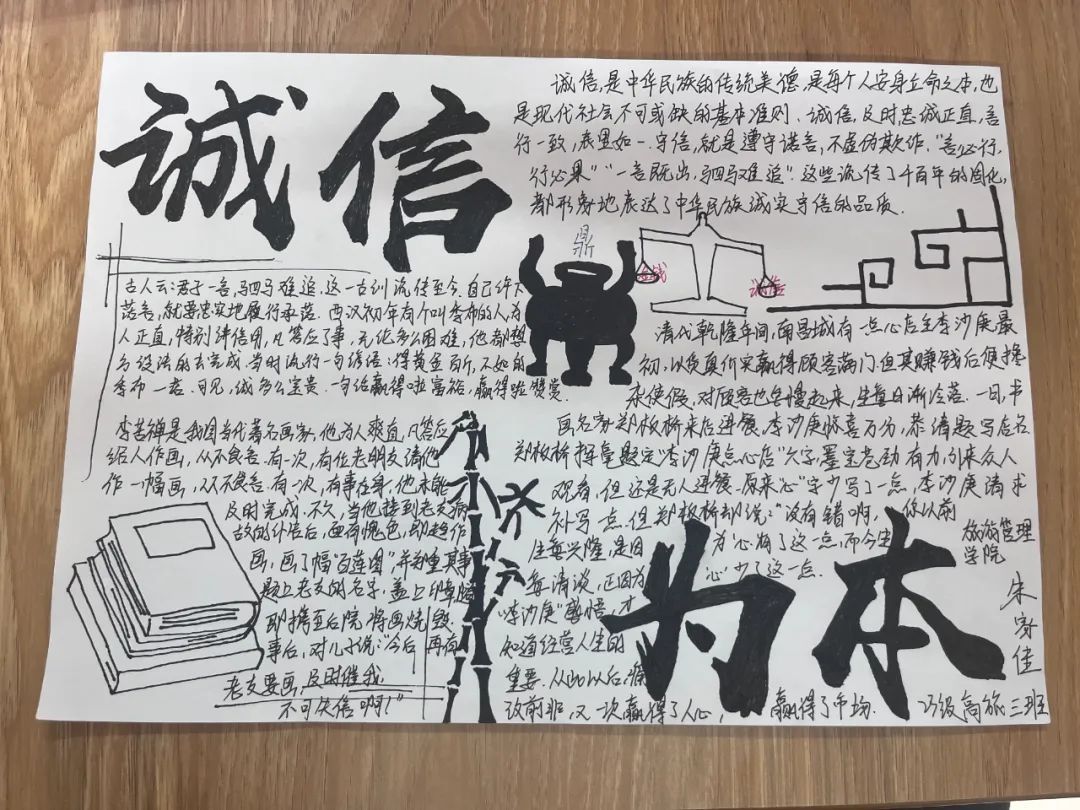 誠信
诚信,是中华民族的传统美德,是每个人安身立命之本,也
是现代社会不可或缺的基本准则、诚信,及时忠诚正直,言
行一致,表里如一.守信,就是遵守诺言,不虚伪欺诈.“言必行,
行必果”“一言既出,驷马难追”.这些流传了千百年的固化,
都形象地表达了中华民族诚实守信的品质.
鼎
诚信
古人云:君子一言,驷马难追.这一古训流传至今.自己许下
诺言,就要忠实地履行承诺.西汉初年有个叫季布的人,为
人正直,特别讲信用,凡答应了事,无伦多么困难,他都想
方设法的去完成.当时流行一句谚语:得黄金百斤,不如的
季布一诺.可见,诚多么宝贵.一句话赢得啦富裕,赢得啦赞赏.
李苦禅是我国当代著名画家,他为人爽直,凡答应
给人作画,从不食言.有一次,有位老朋友请他
作一幅画,从不食言.有一次,有事在身,他未能
及时完成.不久,当他接到老友病
故的讣告后,面有愧色,即趋作
画,画了幅“百莲图”,并郑重其事
题上老友的名字,盖上印章,随
即携至后院,将画烧毁.
事后,对儿子说:“今后再有
老友要画,及时催我,
不可失信啊!”
清代乾隆年间,南昌城有一点心店主李沙庚最
初,以货真价实赢得顾客满门.但其赚钱后便掺
杂使假,对顾客也怠慢起来,生每日渐冷落.一日,书
画名家郑板桥来店进餐,李沙庚惊喜万分,恭请题写店名.
郑板桥挥毫题定“李沙庚点心店”六字,墨宝苍劲有力,引来众人
观看,但还是无人进餐.原来“心”字少写了一点,李沙庚请求
补写一点.但郑板桥却说:“没有错啊,你以前
生每兴隆,是因为“心”有了这一点,而今生
每清淡,正因为“心”少了这一点.
李沙庚”感悟,才
知道经营人生的
重要.从此以后,痛
改前非,又一次赢得了人心,赢得了市场.
为本
旅游管理
学院
朱
佳
23级高旅三班